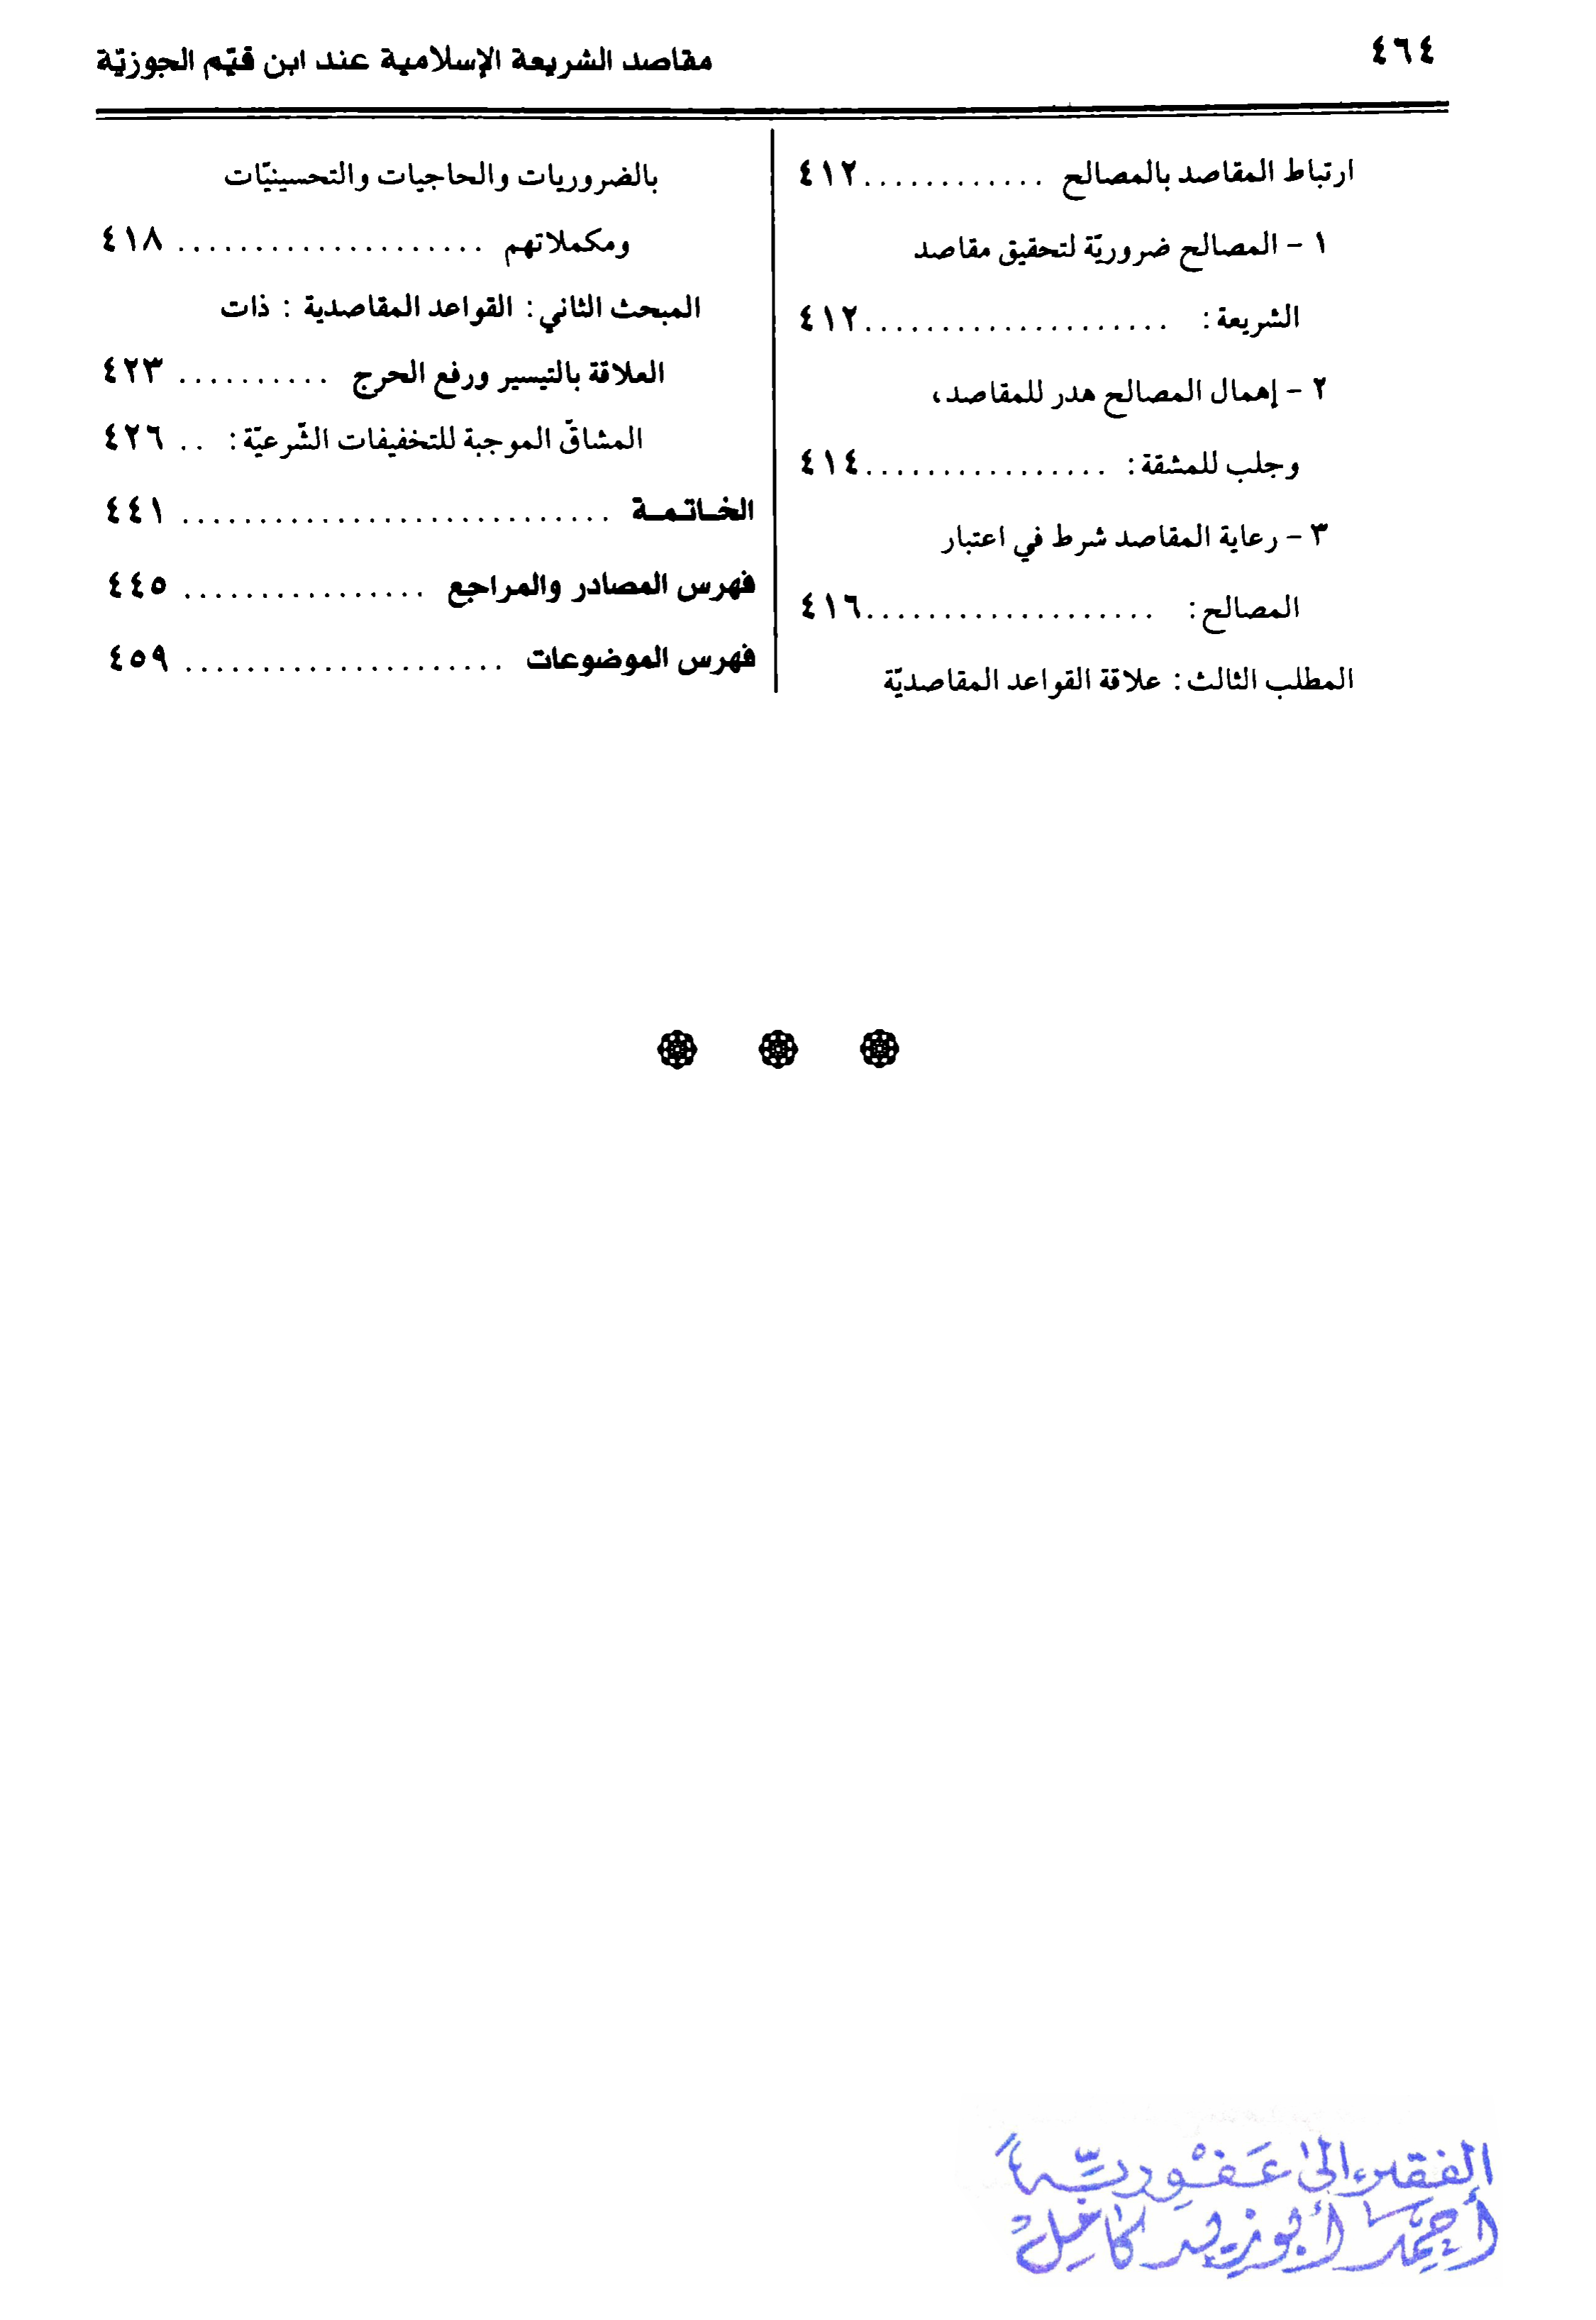 ٤٦٤
مقاصد الشريعة الإسلامية عند ابن قيّم الجوزيّة
ارتباط المقاصد بالمصالح ............ ٤١٢
١ - المصالح ضروريّة لتحقيق مقاصد
الشريعة : .................... ٤١٢
٢ - إهمال المصالح هدر للمقاصد،
وجلب للمشقة : ................ ٤١٤
٣ - رعاية المقاصد شرط في اعتبار
المصالح : ................... ٤١٦
المطلب الثالث : علاقة القواعد المقاصديّة
بالضروريات والحاجيات والتحسينيّات
ومكملاتهم .................... ٤١٨
المبحث الثاني : القواعد المقاصدية : ذات
العلاقة بالتيسير ورفع الحرج .......... ٤٢٣
المشاقّ الموجبة للتخفيفات الشّرعيّة : .. ٤٢٦
الخـاتـمـة ............................ ٤٤١
فهرس المصادر والمراجع ................ ٤٤٥
فهرس الموضوعات ..................... ٤٥٩
الفقير إلى عَفْوِ ربِّه
أحمد أبو زيد كامل